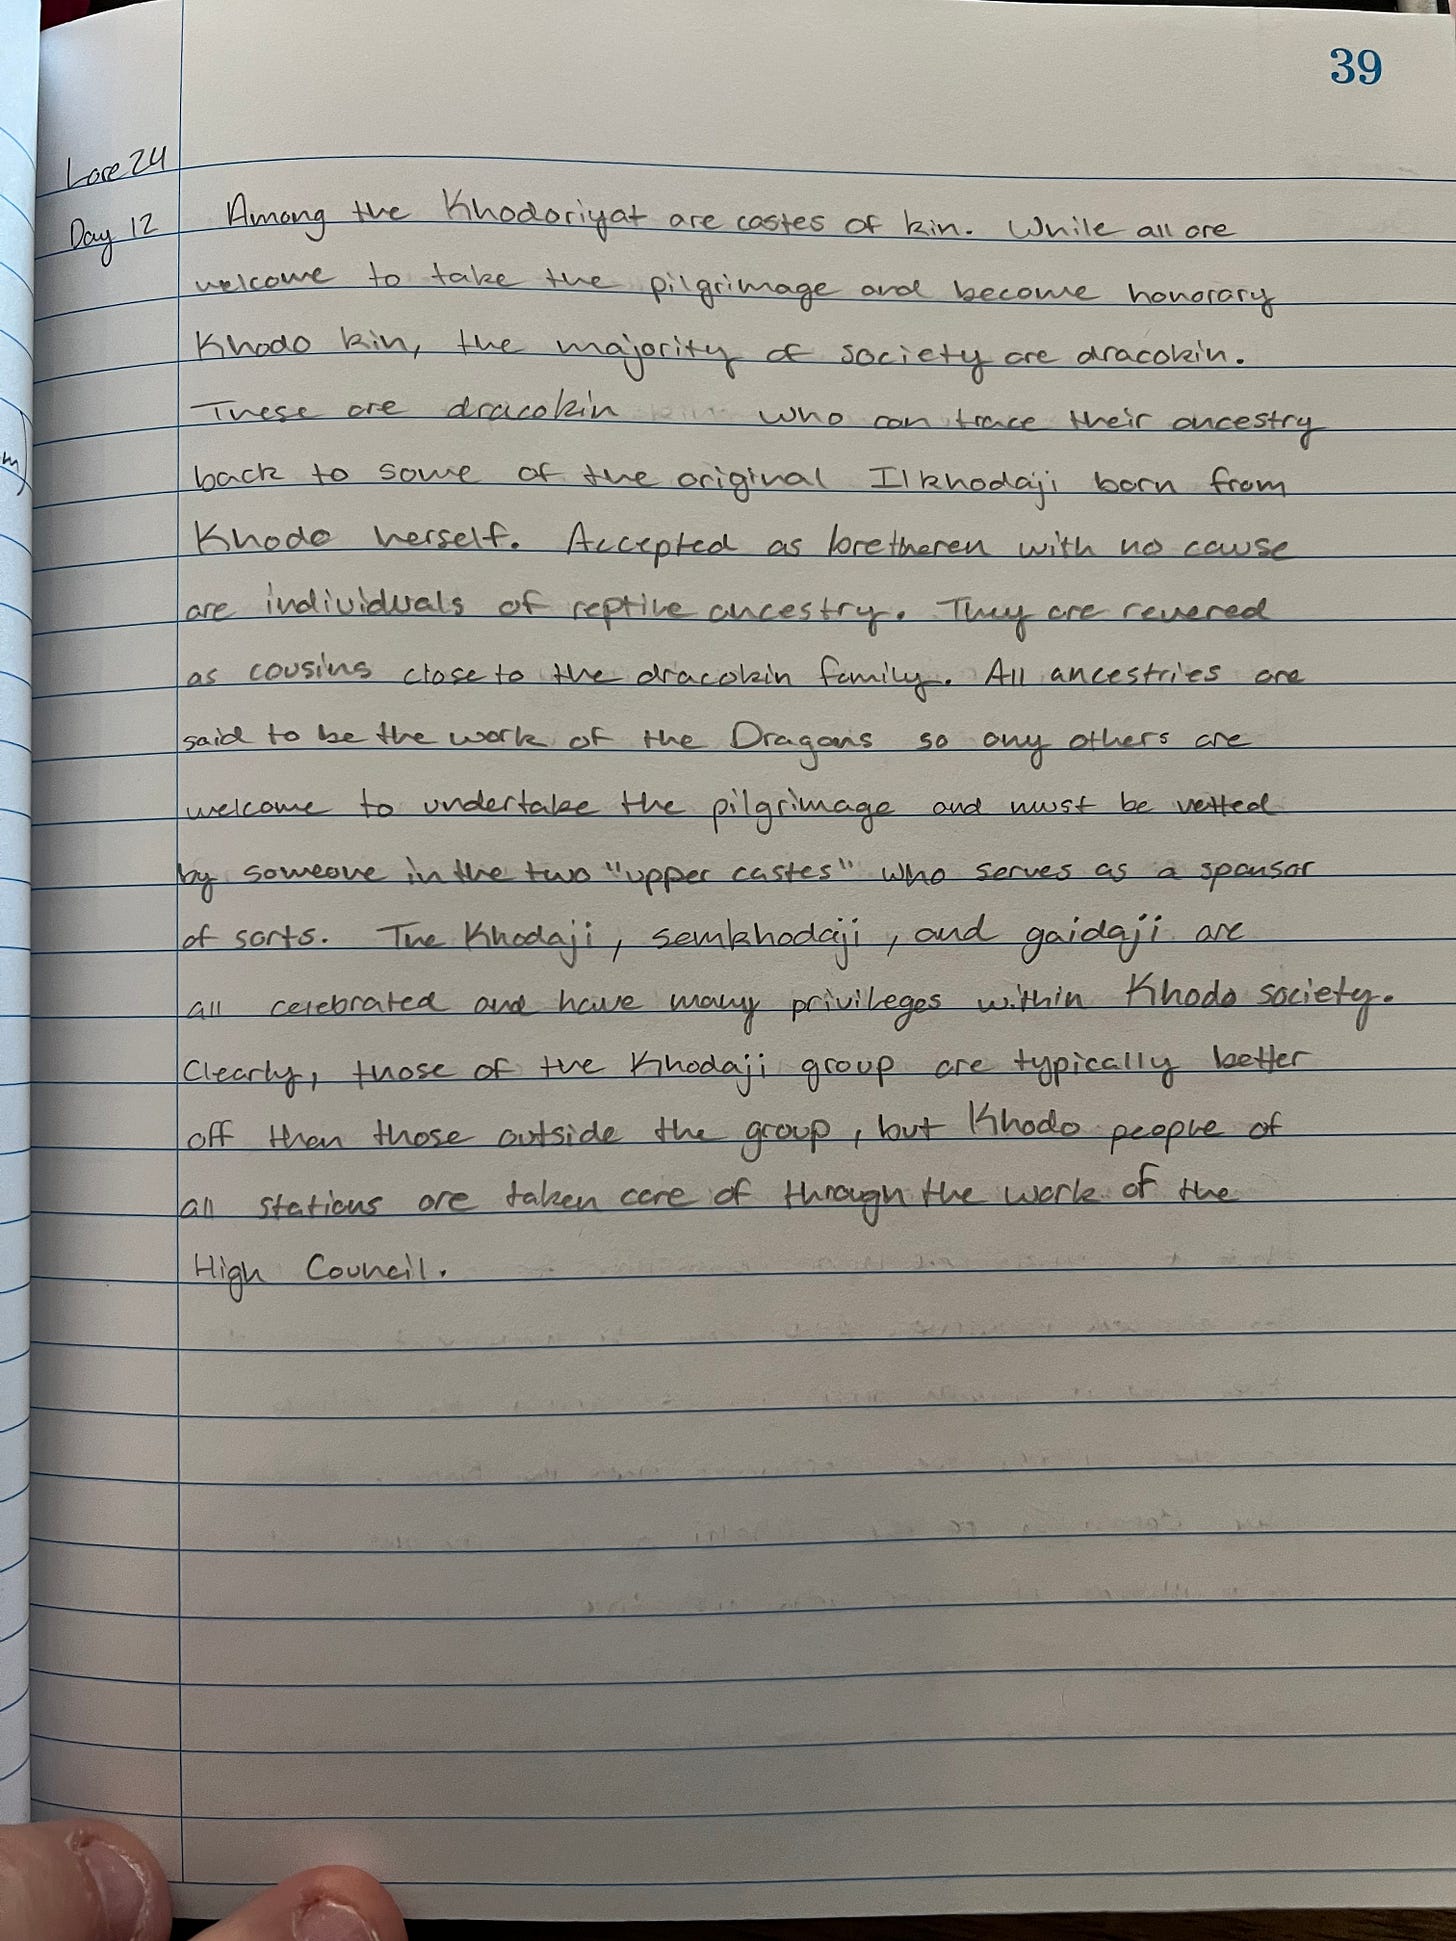 39
Lore 24
Day 12
Among the Khodoriyat are castes of kin. While all are
welcome to take the pilgrimage and become honorary
Khodo kin, the majority of society are dracokin.
These are dracokin who can trace their ancestry
back to some of the original Ilkhodaji born from
Khodo herself. Accepted as bretheren with no cause
are individuals of reptile ancestry. They are revered
as cousins close to the dracokin family. All ancestries are
said to be the work of the Dragons so any others are
welcome to undertake the pilgrimage and must be vetted
by someone in the two "upper castes" who serves as a sponsor
of sorts. The Khodaji, semkhodaji, and gaidaji are
all celebrated and have many privileges within Khodo society.
Clearly, those of the Khodaji group are typically better
off then those outside the group, but Khodo people of
all stations are taken care of through the work of the
High Council.